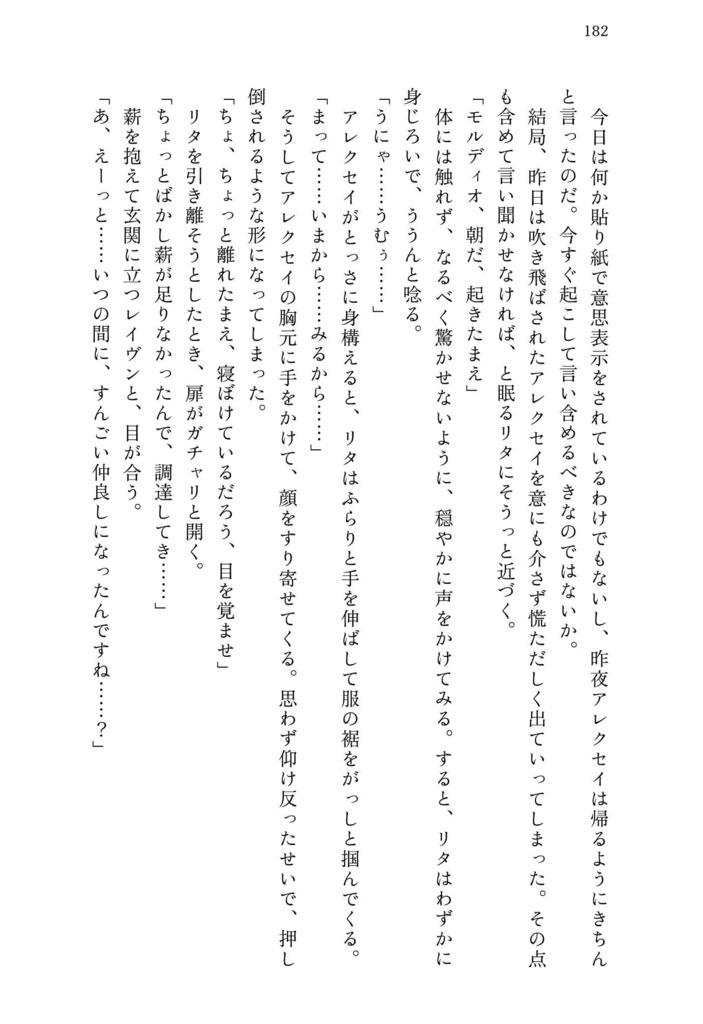 182
今日は何か貼り紙で意思表示をされているわけでもないし、昨夜アレクセイは帰るようにきちん
と言ったのだ。今すぐ起こして言い含めるべきなのではないか。
結局、昨日は吹き飛ばされたアレクセイを意にも介さず慌ただしく出ていってしまった。その点
も含めて言い聞かせなければ、と眠るリタにそうっと近づく。
「モルディオ、朝だ、起きたまえ」
体には触れず、なるべく驚かせないように、穏やかに声をかけてみる。すると、リタはわずかに
身じろいで、ううんと唸る。
「うにゃ……うむぅ……」
アレクセイがとっさに身構えると、リタはふらりと手を伸ばして服の裾をがっしと掴んでくる。
「まって……いまから……みるから……」
そうしてアレクセイの胸元に手をかけて、顔をすり寄せてくる。思わず仰け反ったせいで、押し
倒されるような形になってしまった。
「ちょ、ちょっと離れたまえ、寝ぼけているだろう、目を覚ませ」
リタを引き離そうとしたとき、扉がガチャリと開く。
「ちょっとばかし薪が足りなかったんで、調達してき……」
薪を抱えて玄関に立つレイヴンと、目が合う。
「あ、えーっと……いつの間に、すんごい仲良しになったんですね……？」